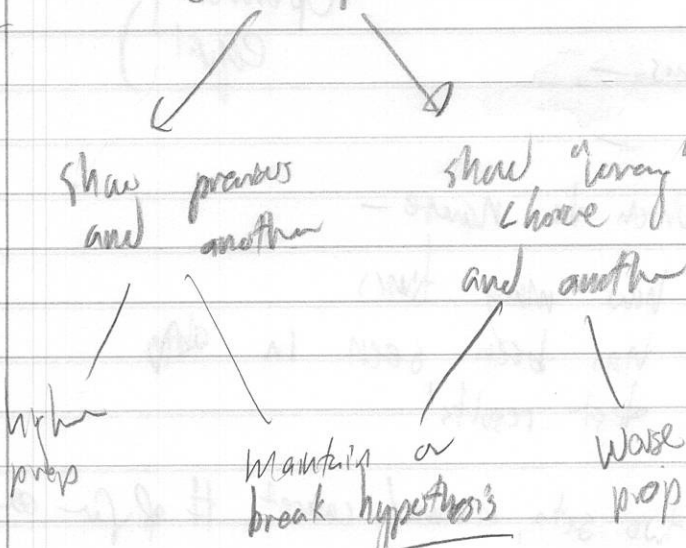 show previous
and another
show "wrong"
choice
and another
higher
prop
maintain or
break hypothesis
worse
prop